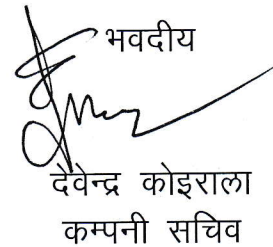 भवदीय
देवेन्द्र कोइराला
कम्पनी सचिव